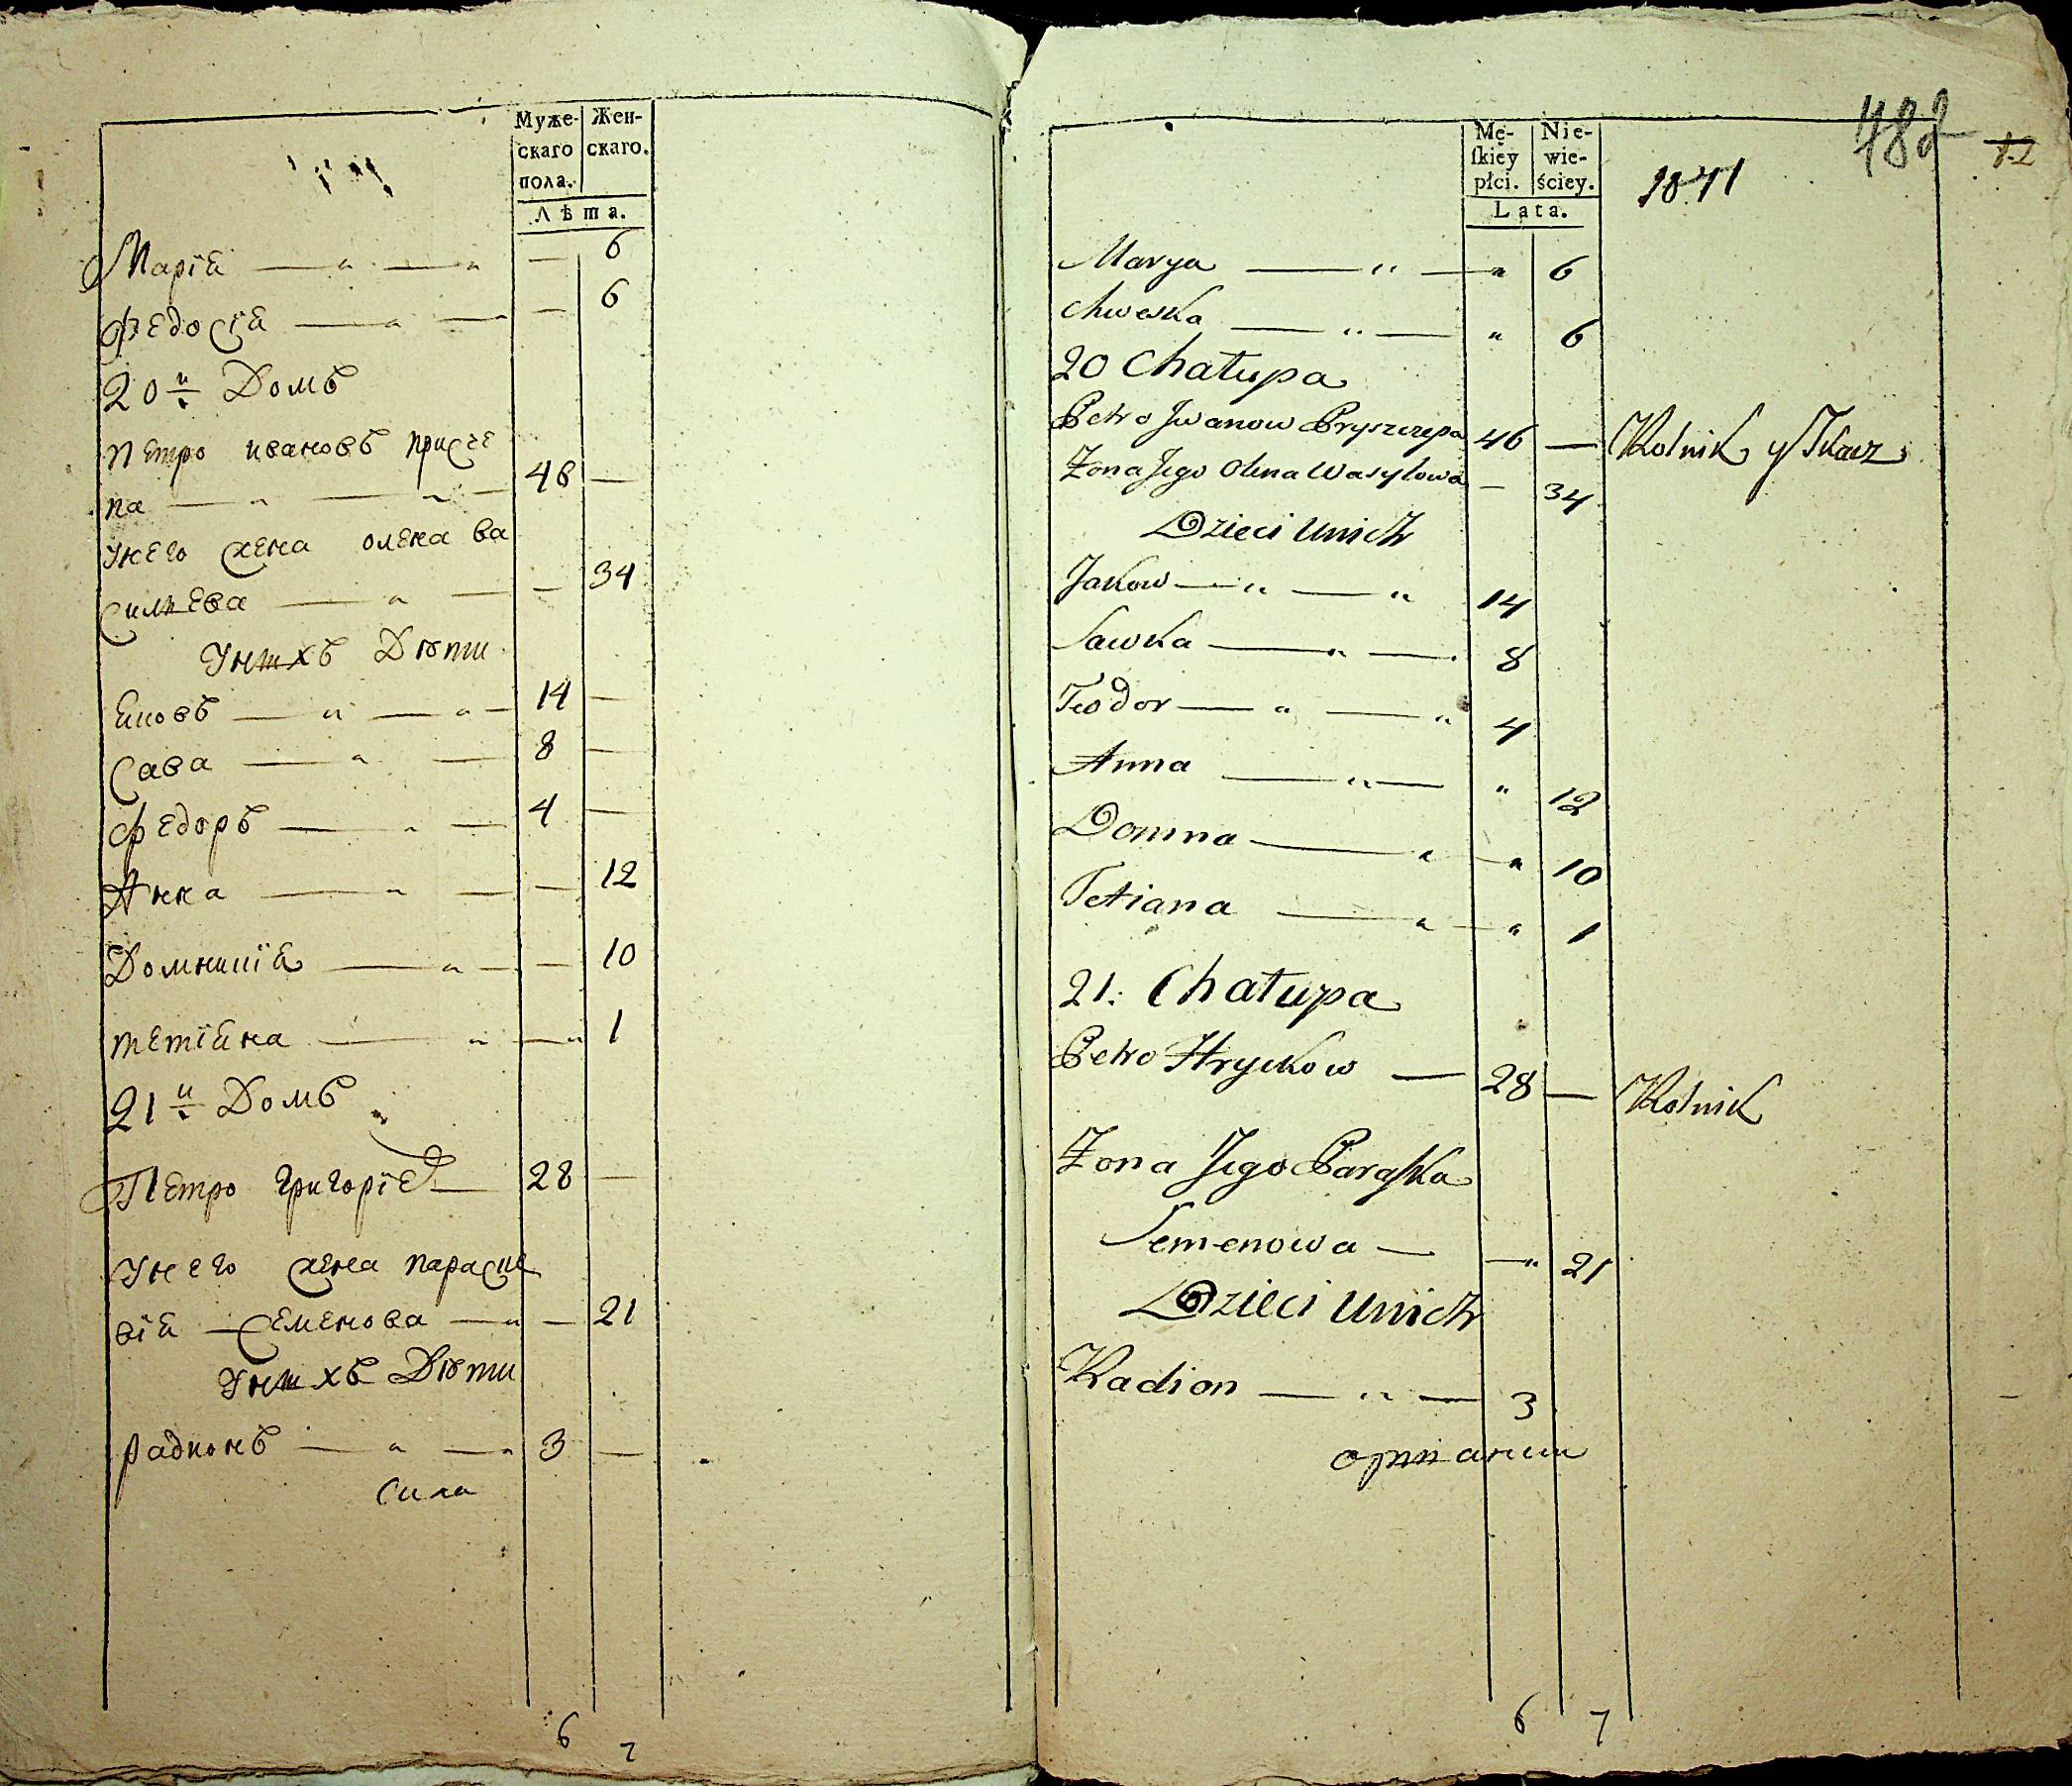 Муже-
скаго
пола.
Жен-
скаго.
Лѣта.
Марія — „ — „ — 6
Федосія — „ — „ — 6
20й Домъ
Петро ивановъ прище
па — „ — „ — 46 —
Унего жена олена ва
сильева — „ — — 34
Унихъ Дѣти
Яковъ — „ — „ — 14 —
Сава — „ — 8 —
Федоръ — „ — 4 —
Анна — „ — — 12
Домникія — „ — — 10
тетіяна — „ — „ 1
21й Домъ
Петро григоріев — 28 —
Унего жена параске
вія — Семенова — „ — 21
Унихъ Дѣти
Радионъ — „ — „ 3 —
Сила
6 7
Mę-
ſkiey
płci.
Nie-
wie-
ściey.
Lata.
482
Marya — „ — „ 6
Chweska — „ — „ 6
20 Chałupa
Petro Jwanow Pryszczepa 46 — Rolnik y Tkacz
Żona Jego Olena Wasylowa — 34
Dzieci Unich
Jakow — „ — „ 14
Sawka — „ — 8
Teodor — „ — „ 4
Anna — „ — „ 12
Domna — „ — „ 10
Tetiana — „ — „ 1
21. Chałupa
Petro Hryckow — 28 — Rolnik
Żona Jego Paraſka
Semenowa — — „ 21
Dzieci Unich
Radion — „ — 3
6 7